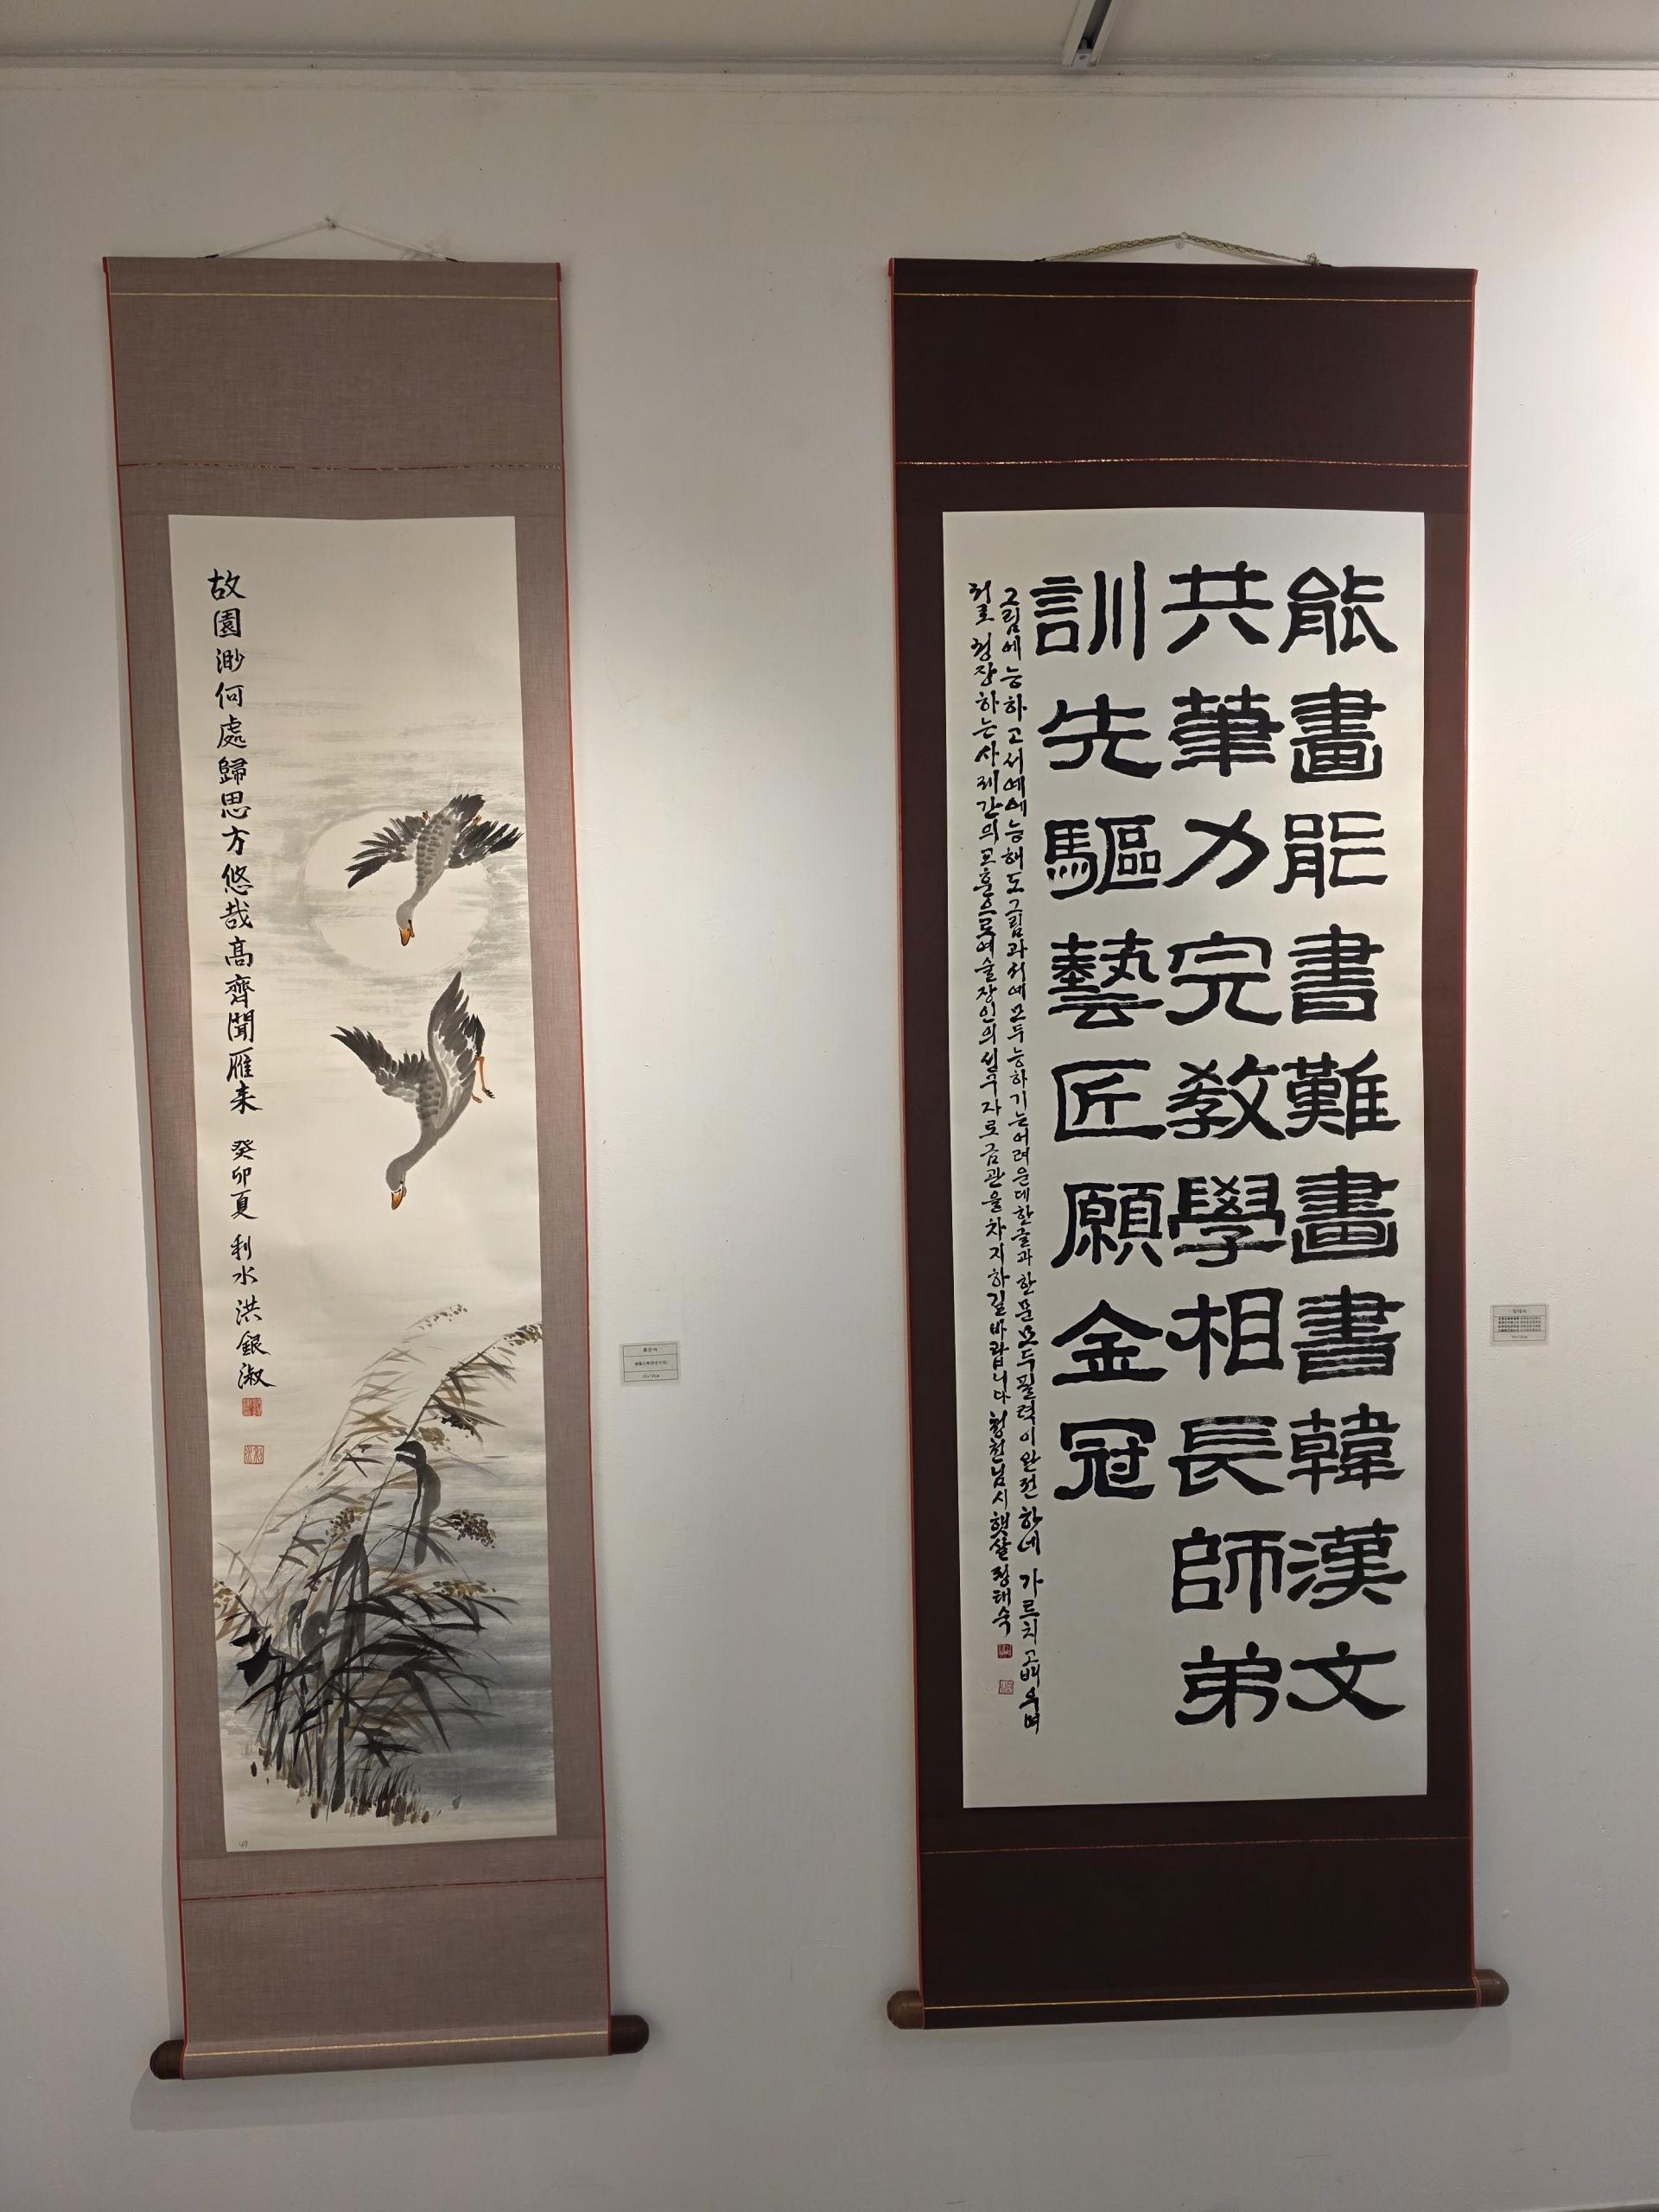 故園渺何處歸思方悠哉高齊聞雁来 癸卯夏 利水 洪銀淑
能畫能書難畫書韓漢文
共筆力完教學相長師弟
訓先驅藝匠願金冠
그림에능하고서예에능해도그림과서예모두능하기는어려운데한글과한문모두필력이완전하네 가르치고배우며
서로 성장하는사제간의교훈으로예술장인의선구자로금관을차지하길바랍니다 청천님시햇살 정태숙
홍은숙
정태숙